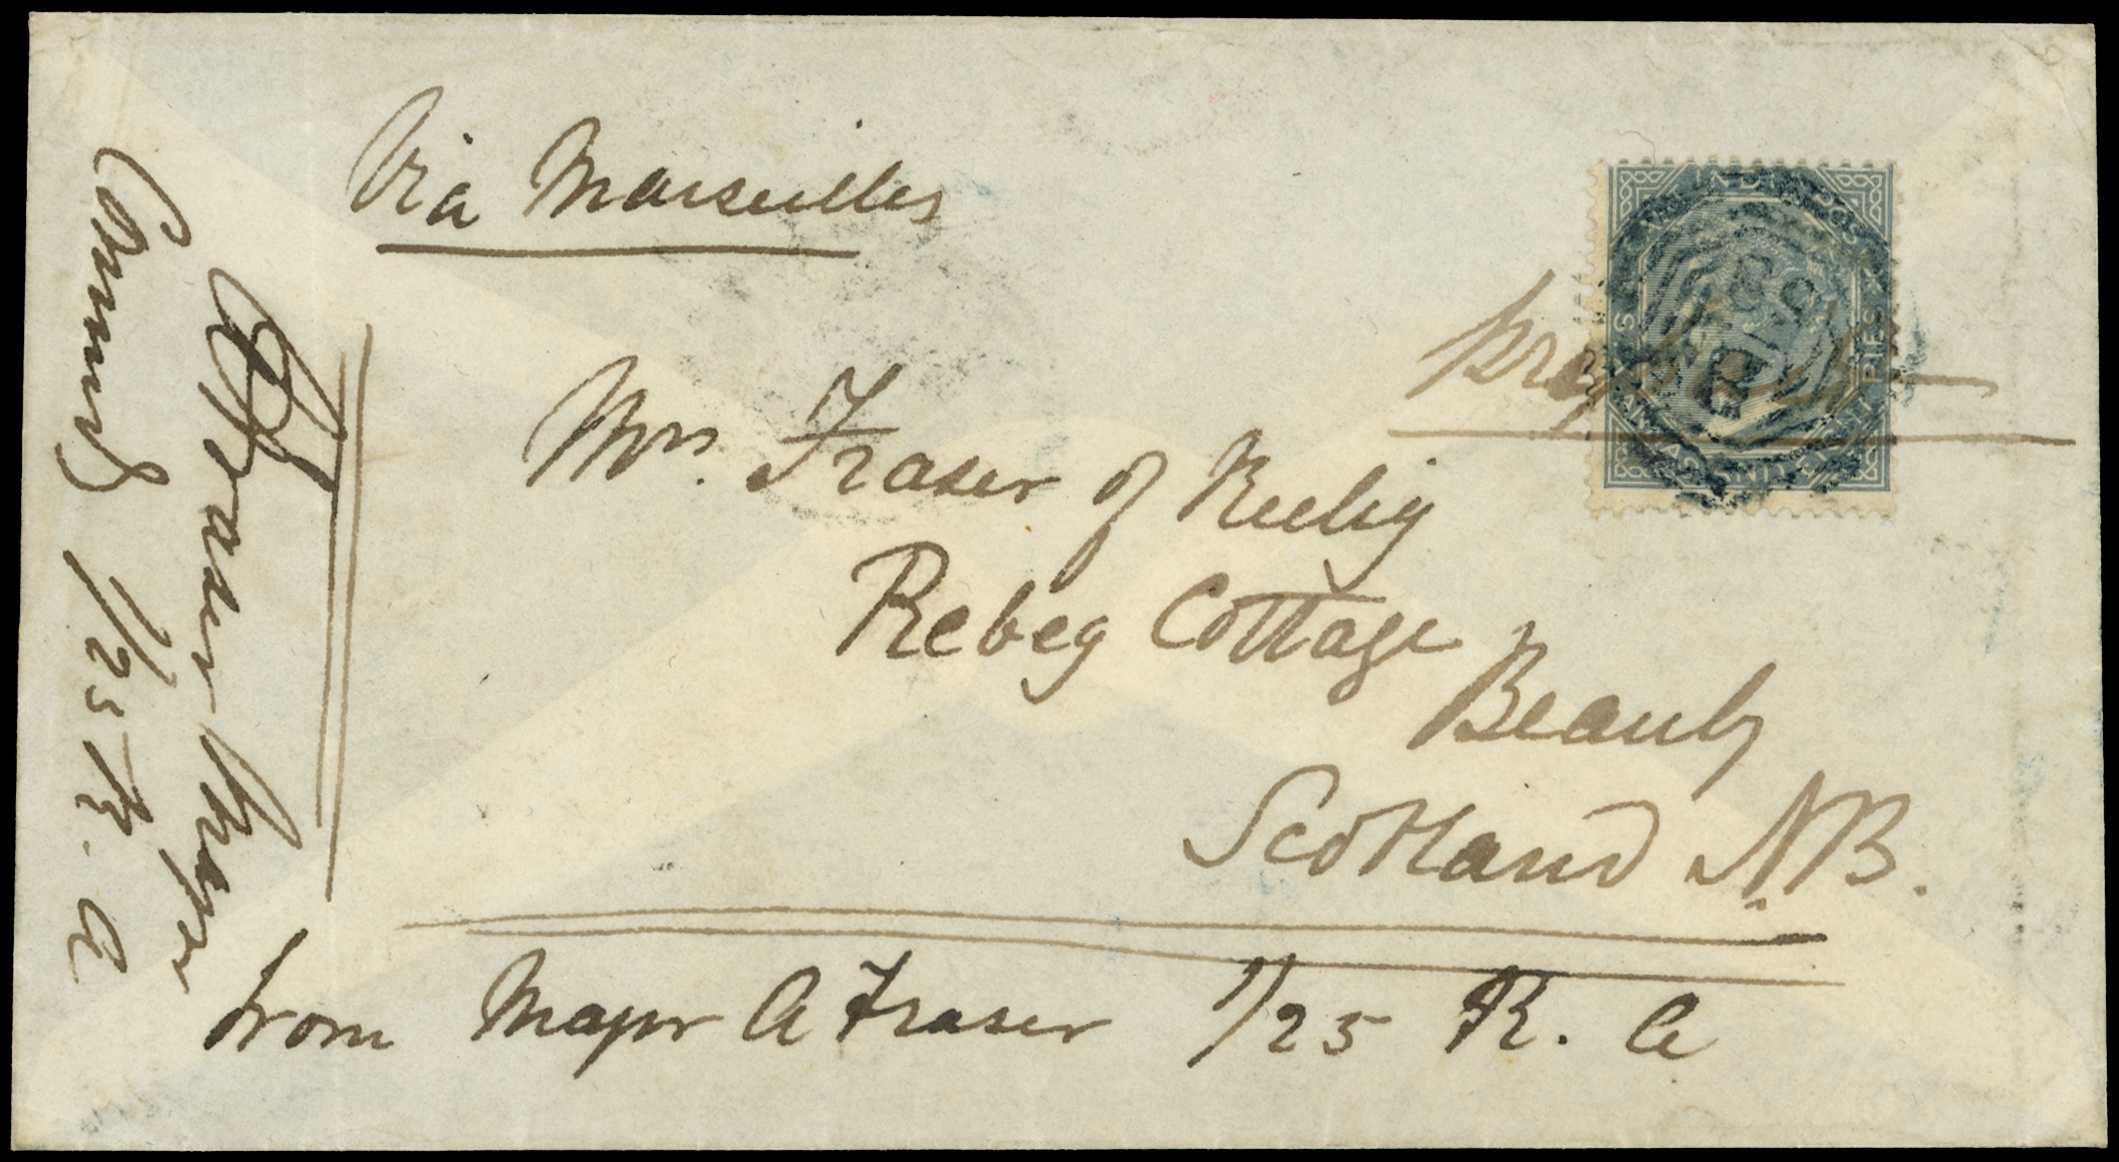 Via Marseilles
prepaid
Mrs. Fraser of Reelig
Rebeg Cottage
Beauly
Scotland N.B.
from Major A Fraser 1/25 R. A
Fraser Major
Comndg 1/25 R. A
PIES